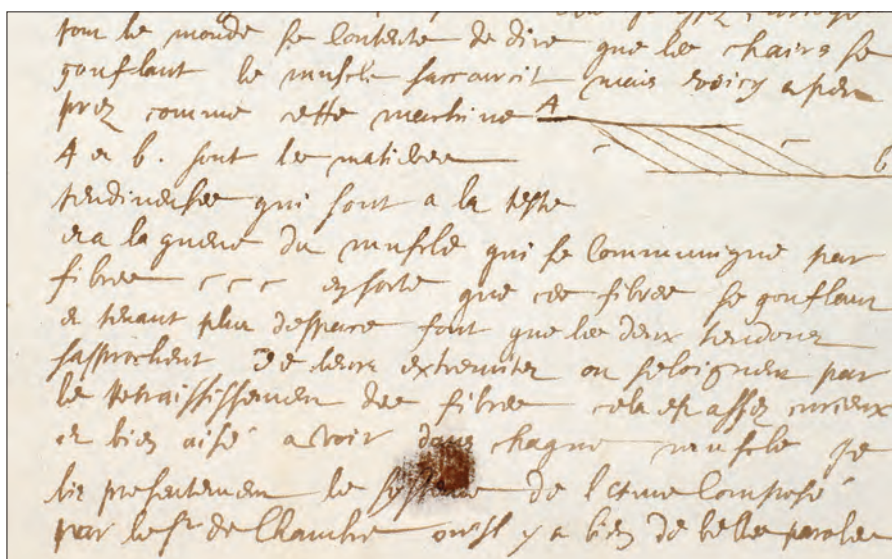 tout le monde se contente de dire que les chairs se
gonflant le muscle saccourcit mais voicy a peu
prez comme cette machine A
A et b. sont les matieres c c b
tendineuses qui sont a la teste
et a la queue du muscle qui se communique par
fibres c c c ensorte que ces fibres se gonflant
et tenant plus despace font que les deux tendons
sapprochent de leurs extremitez ou seloignent par
le retraississement des fibres cela est assez curieux
et bien aisé a voir dans chaque muscle je
lis presentement le systeme de lame composé
par le Sr de Chambre ou il y a bien de belles paroles